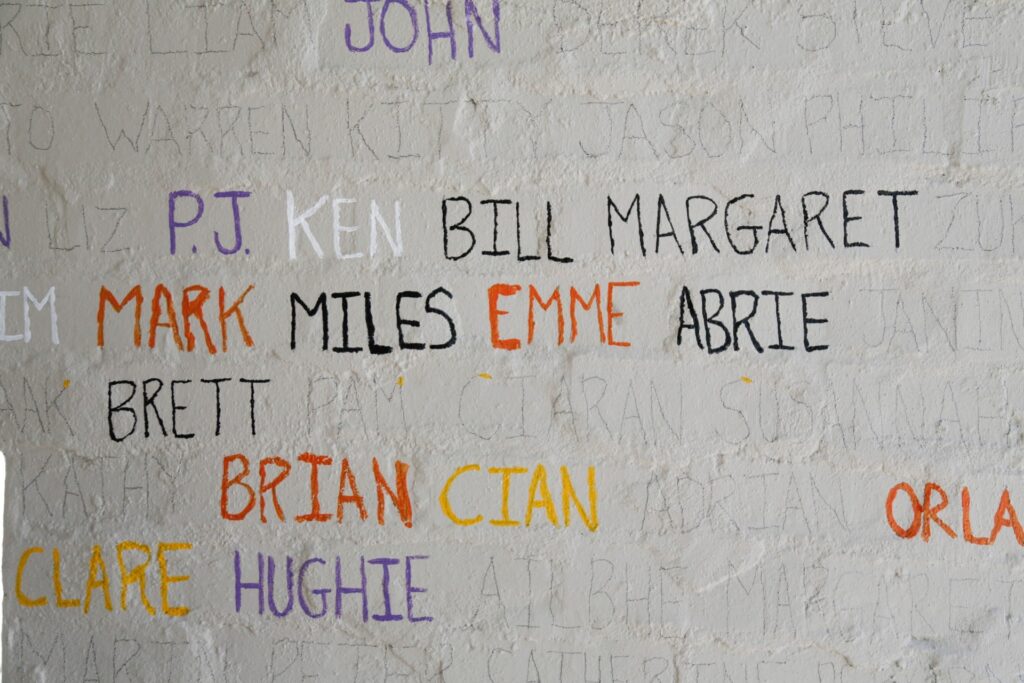 LIAM JOHN DEREK STEVE
WARREN KITTY JASON PHILIP
LIZ P.J. KEN BILL MARGARET
IM MARK MILES EMME ABRIE JANIN
BRETT PAM CIARAN SUSANNAH
KATHY BRIAN CIAN ADRIAN ORLA
CLARE HUGHIE AILBHE MARGARET
MARTIN PETER CATHERINE